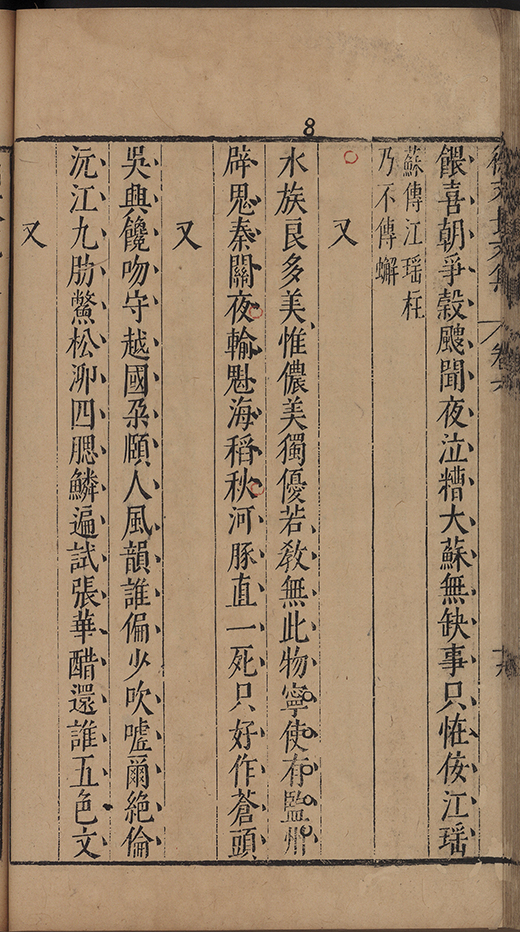 徐文長文集 卷六
餵喜朝爭榖颼聞夜泣糟大蘇無缺事只恠佞江瑶
蘇傳江瑶柱
乃不傳蠏
又
水族艮多美惟儂美獨優若教無此物寧使有監州
辟鬼秦關夜輸魁海稻秋河豚直一死只好作蒼頭
又
吳興饞吻守越國朶頥人風韻誰偏少吹噓爾絶倫
沅江九肋鱉松泖四腮鱗遍試張華醋還誰五色文
又
8